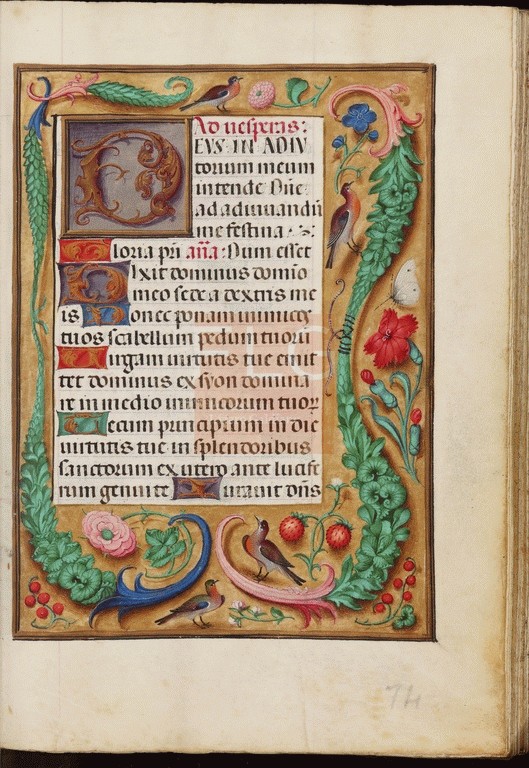 Ad uesperas:
DEVS IN ADIV
torium meum
intende Dñe
ad adiuuandũ
me festina
Gloria pri añ̃a: Dum esset
Dixit dominus domĩo
meo sede a dextris me
is Donec ponam inimicos
tuos scabellum pedum tuorũ
Virgam uirtutis tue emit
tet dominus ex syon domina
re in medio inimicorum tuoꝝ
Tecum principium in die
uirtutis tue in splendoribus
sanctorum ex utero ante lucife
rum genui te Iurauit dñs
74